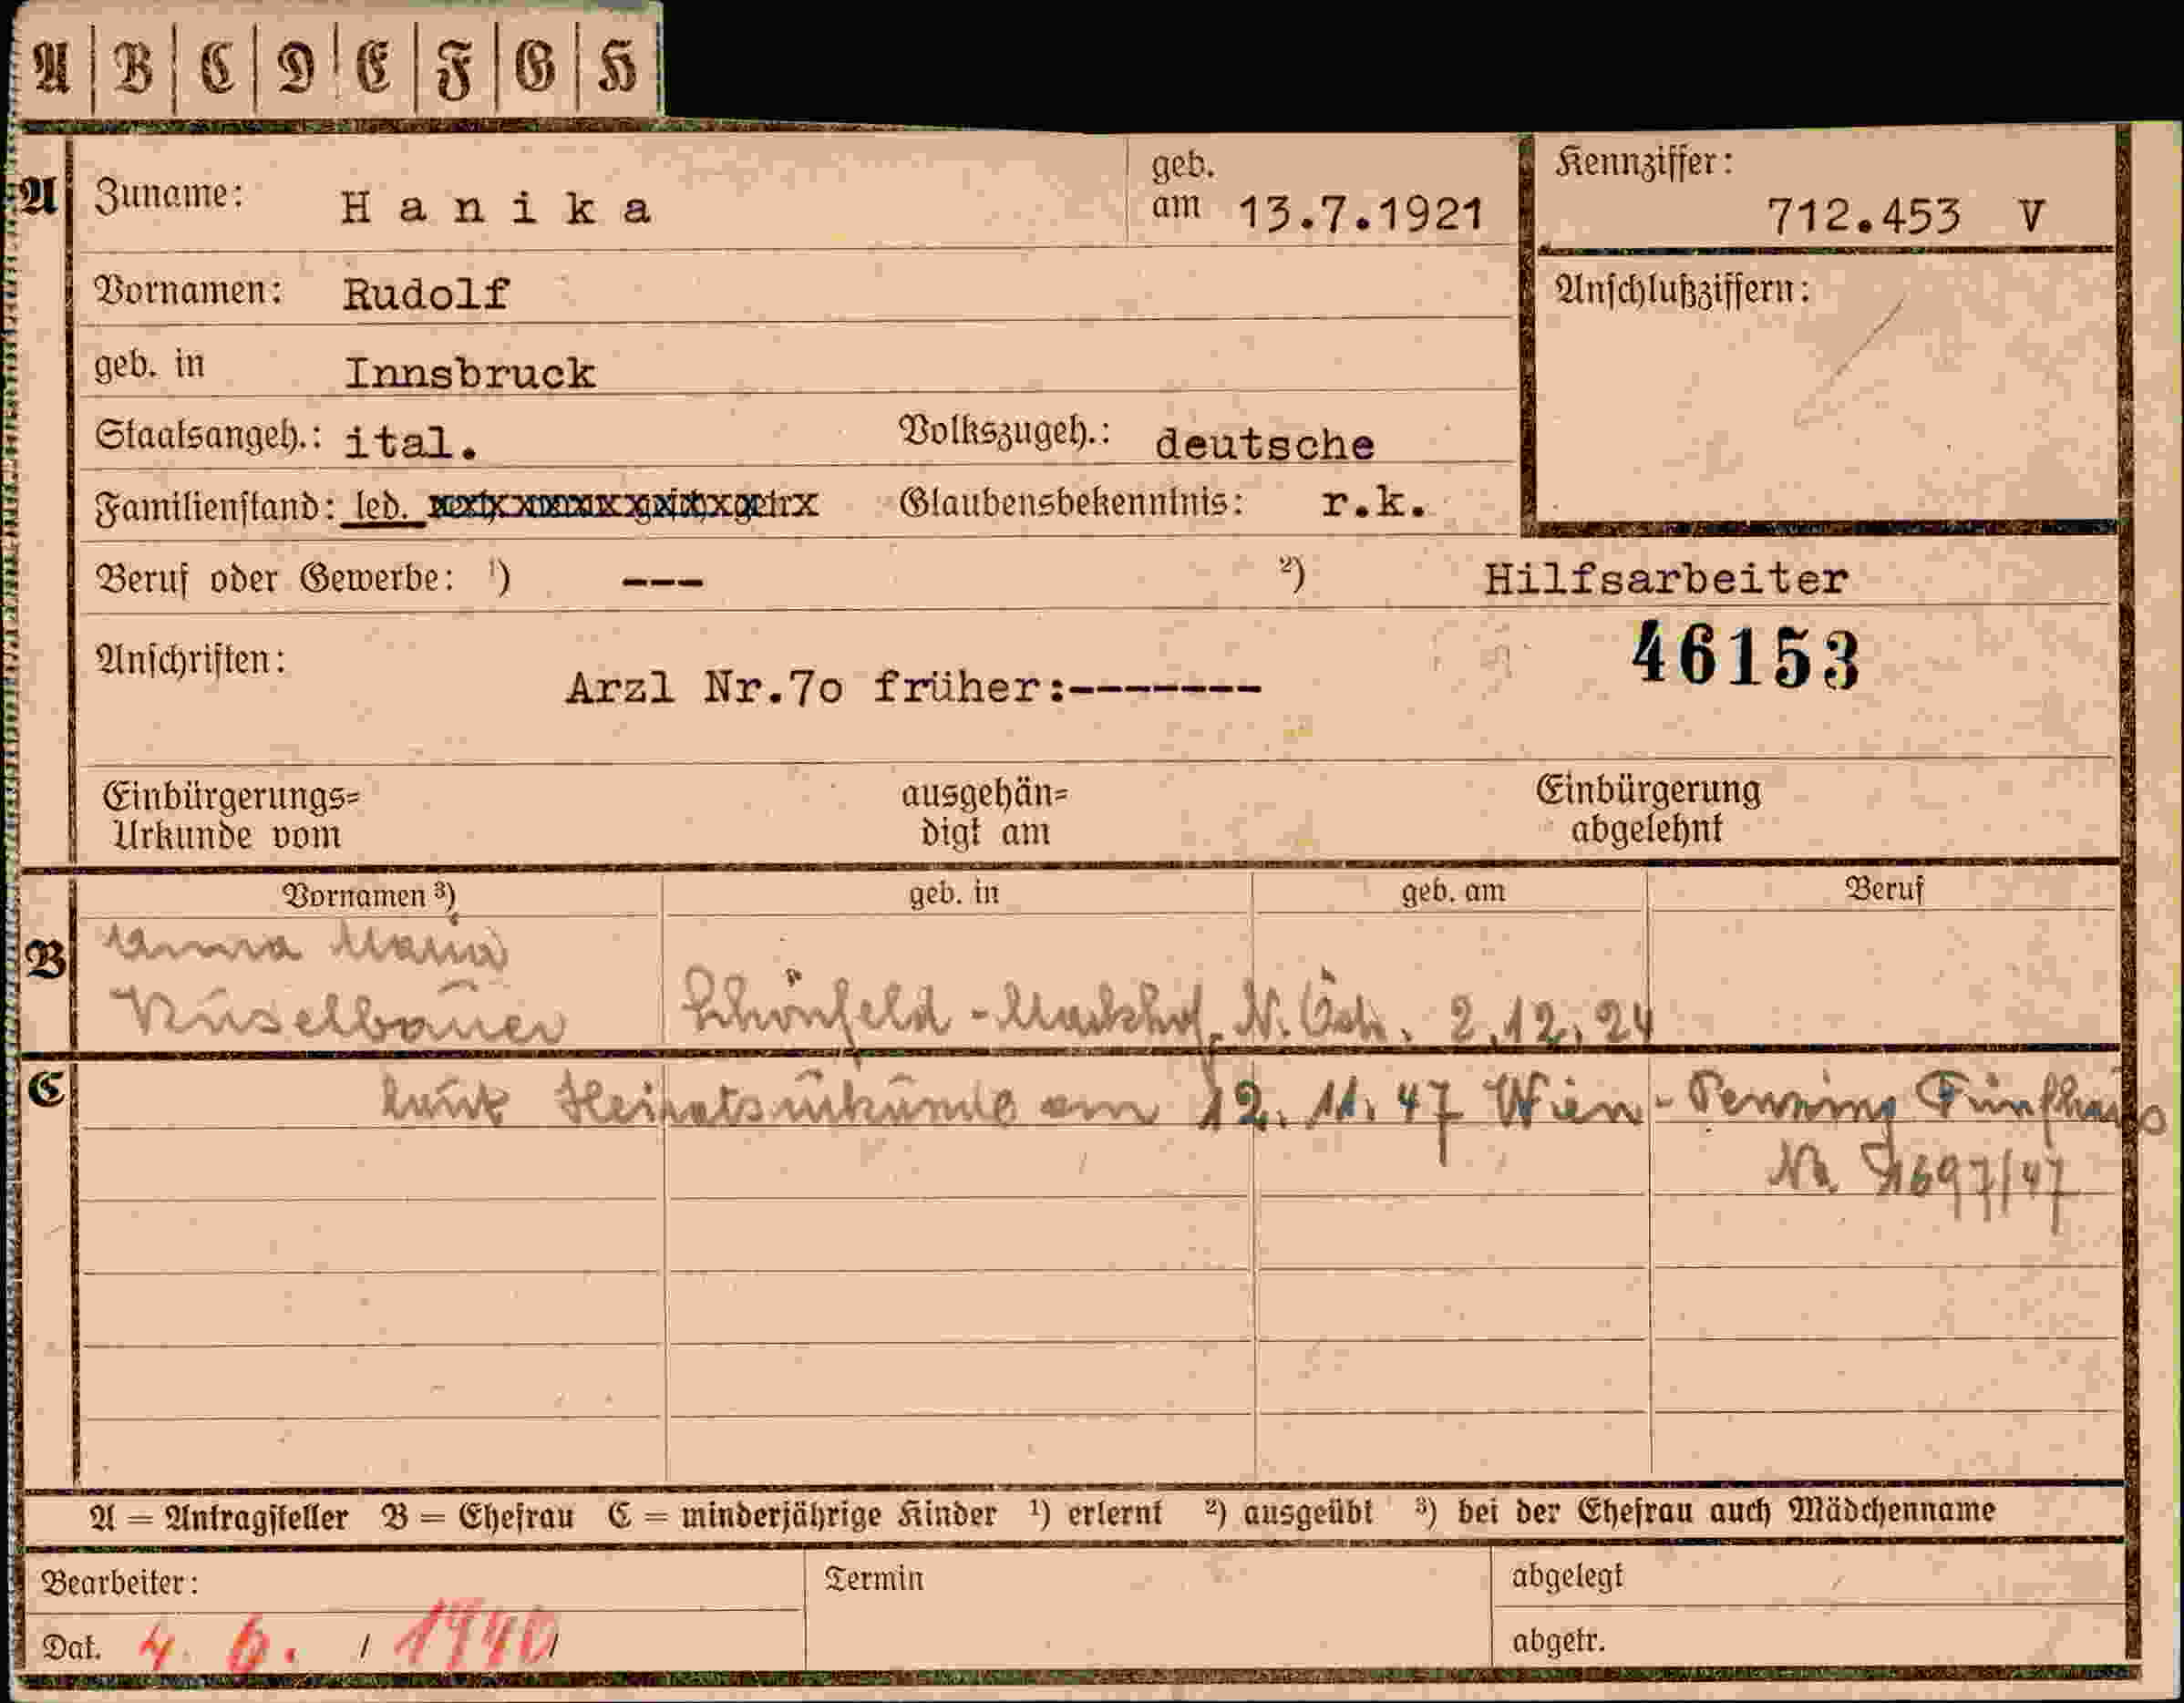 A | B | C | D | E | F | G | H
A Zuname: Hanika geb. am 13.7.1921 Kennziffer: 712.453 V
Vornamen: Rudolf Anschlußziffern:
geb. in Innsbruck
Staatsangeh.: ital. Volkszugeh.: deutsche
Familienstand: led. Glaubensbekenntnis: r.k.
Beruf oder Gewerbe: 1) --- 2) Hilfsarbeiter
46153
Anschriften: Arzl Nr.7o früher:-------
Einbürgerungs= ausgehän= Einbürgerung
Urkunde vom digt am abgelehnt
Vornamen 3) geb. in geb. am Beruf
B Anna Maria
Nuselbauer Schönfeld - Markhof N. Östr. 2.12.24
C laut Heiratsurkunde am 12. 11. 47 Wien - Penzing Fünfhaus
Nr. 1697/47
A = Antragsteller B = Ehefrau C = minderjährige Kinder 1) erlernt 2) ausgeübt 3) bei der Ehefrau auch Mädchenname
Bearbeiter: Termin abgelegt
Dat. 4. 6. / 1940 / abgetr.